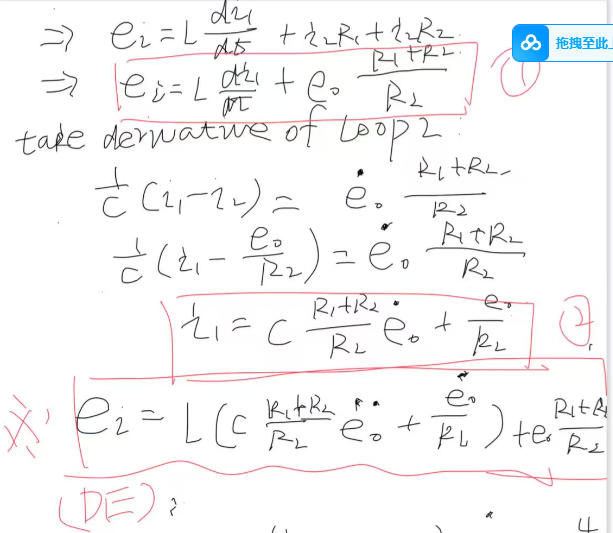 ⇒ e_i = L di_1/dt + i_2R_1 + i_2R_2
拖拽至此上
⇒ e_i = L di_1/dt + e_o (R_1+R_2)/R_2 ①
take derivative of Loop 2.
1/C (i_1 - i_2) = ė_o (R_1+R_2)/R_2
1/C (i_1 - e_o/R_2) = ė_o (R_1+R_2)/R_2
i_1 = C (R_1+R_2)/R_2 ė_o + e_o/R_2 ②
※ e_i = L (C (R_1+R_2)/R_2 ë_o + ė_o/R_L) + e_o (R_1+R_2)/R_2
(DE) :